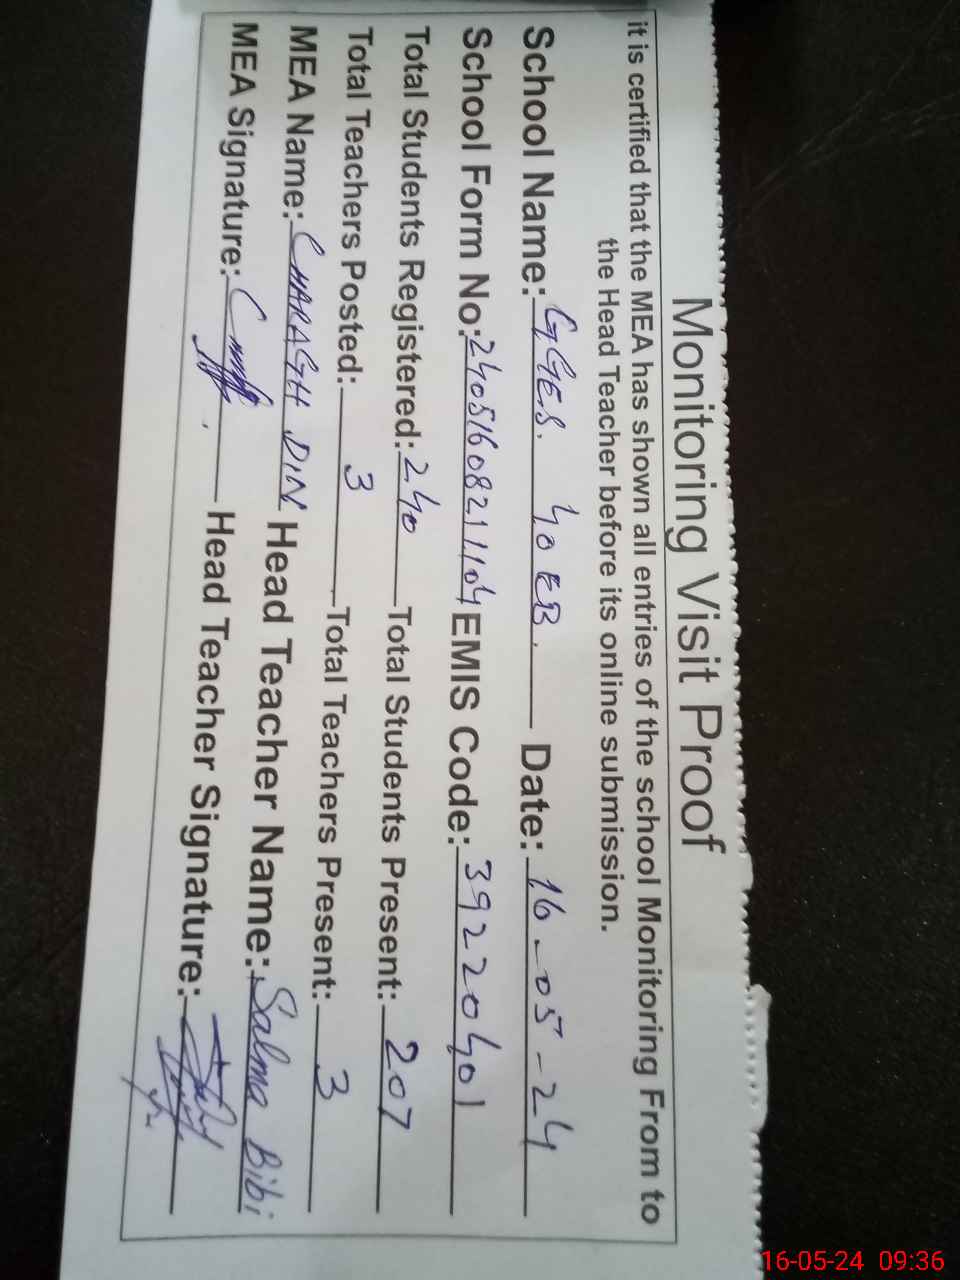 Monitoring Visit Proof
it is certified that the MEA has shown all entries of the school Monitoring From to
the Head Teacher before its online submission.
School Name: GGES. 40 EB. Date: 16-05-24
School Form No: 2405160821104 EMIS Code: 39220401
Total Students Registered: 240 Total Students Present: 207
Total Teachers Posted: 3 Total Teachers Present: 3
MEA Name: CHARAGH DIN Head Teacher Name: Salma Bibi
MEA Signature: Head Teacher Signature:
16-05-24 09:36